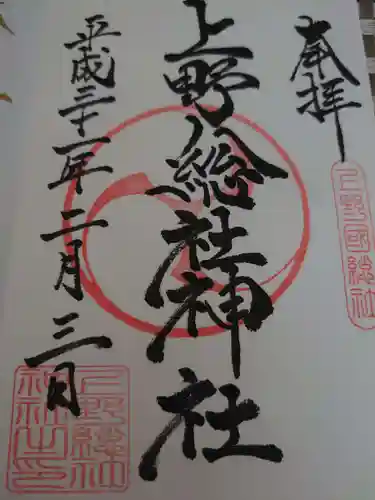 奉拝
上野國総社
上野総社神社
平成三十一年二月三日
上野總社
神社之印